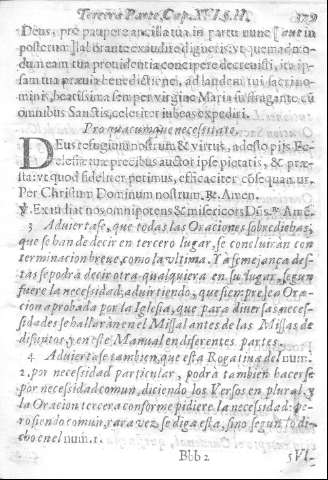 Tercera Parte, Cap. XVI. §. II. 379
Deus, pro paupere ancilla tua in partu nunc [aut in
posterum] laborante exaudire digneris: vt quemadmo-
dum eam tua prouidentia concipere decreuisti, ita ip-
sam tua præuia benedictione, ad laudem tui sacri no-
minis, beatissima semper virgine Maria suffragante, cũ
omnibus Sanctis, celeriter iubeas expediri.
Pro quacumque necessitate.
Deus refugium nostrum & virtus, adesto pijs Ec-
clesiæ tuæ precibus auctor ipse pietatis, & præ-
sta: vt quod fideliter petimus, efficaciter cõsequamur.
Per Christum Dominum nostrum. ℟. Amen.
℣. Exaudiat nos omnipotens & misericors Dñs. ℟. Amẽ.
3 Aduiertase, que todas las Oraciones sobredichas,
que se han de decir en tercero lugar, se concluirán con
terminacion breue, como la vltima. Y a semejança des-
tas se podrà decir otra qualquiera en su lugar, segun
fuere la necessidad, aduirtiendo, que siempre sea Ora-
cion aprobada por la Iglesia, que para diuersas neces-
sidades se hallaràn en el Missal antes de las Missas de
difuntos, y en este Manual en diferentes partes.
4 Aduiertase tambien, que esta Rogatiua del num.
2. por necessidad particular, podrà tambien hacerse
por necessidad comun, diciendo los Versos en plural, y
la Oracion tercera conforme pidiere la necessidad: pe-
ro siendo comun, rara vez se diga esta, sino segun lo di-
cho en el num. 1.
Bbb 2 §VI-